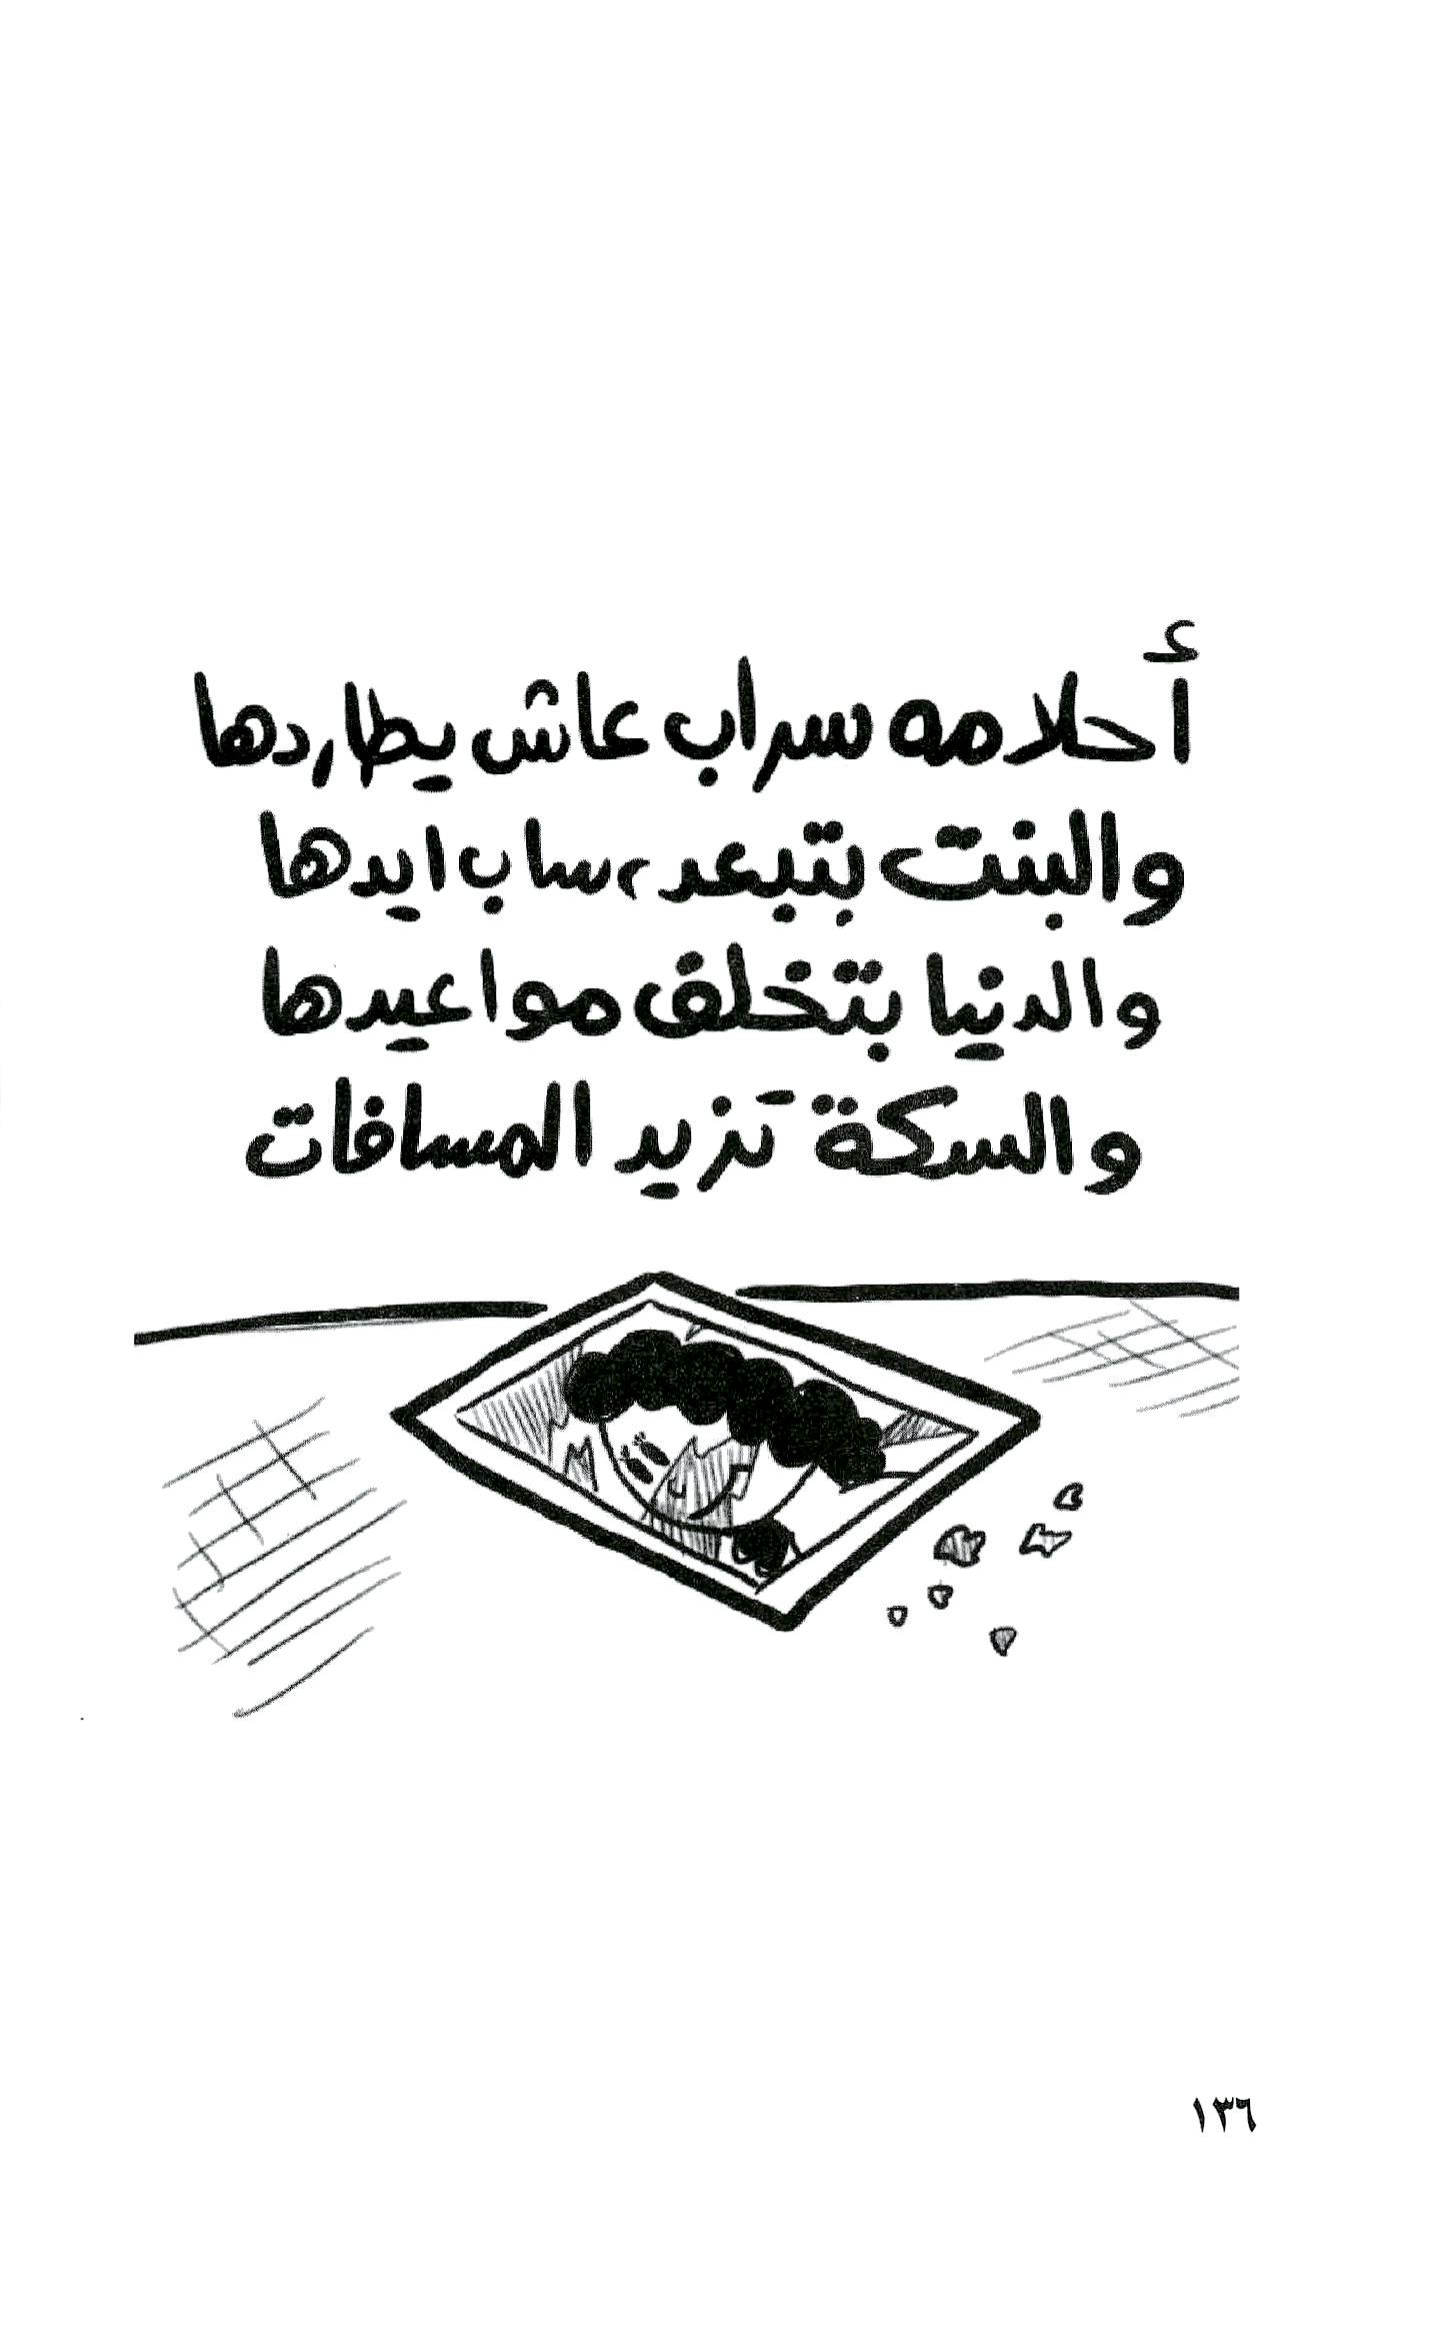 أحلامه سراب عاش يطاردها
والبنت بتبعد، ساب ايدها
والدنيا بتخلف مواعيدها
والسكة تَزيد المسافات
١٣٦